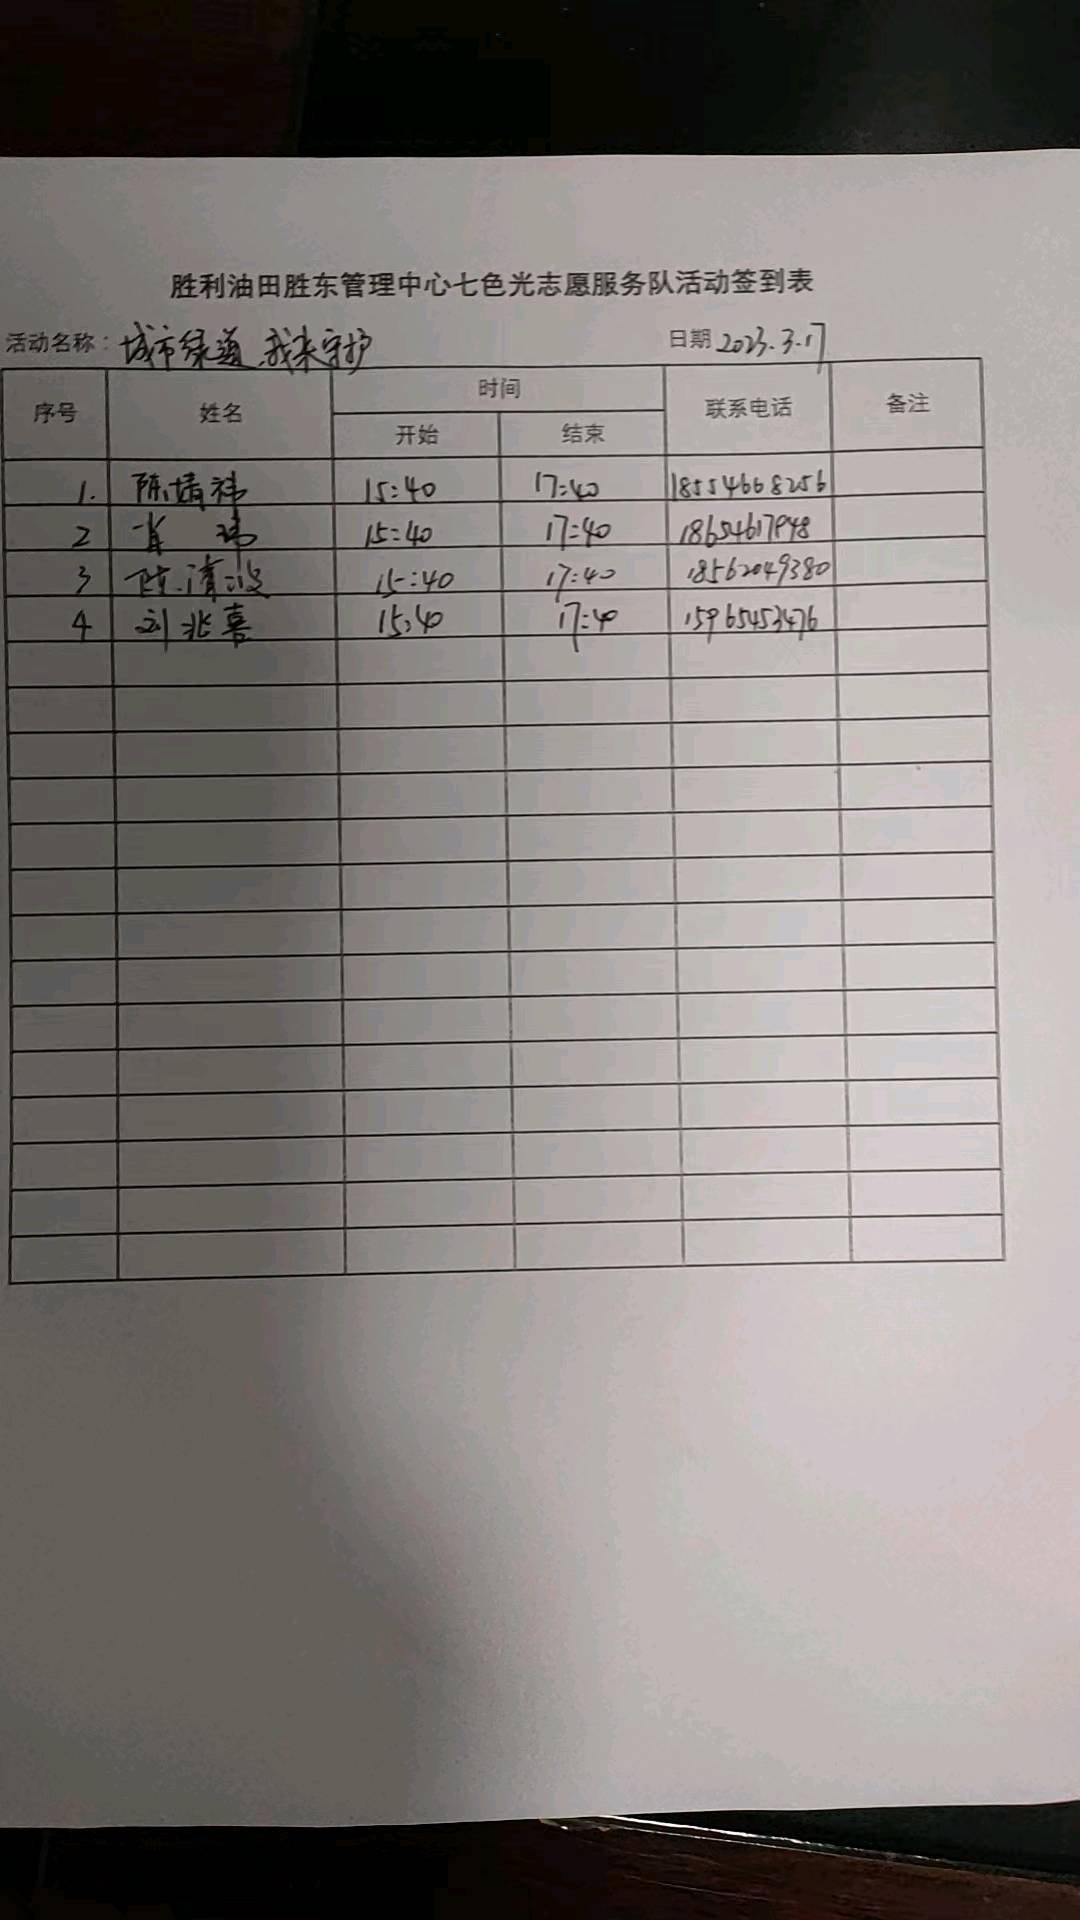 胜利油田胜东管理中心七色光志愿服务队活动签到表
活动名称：城市绿道 我来守护 日期 2023.3.17
序号 姓名 时间 联系电话 备注
开始 结束
1. 陈靖祎 15:40 17:40 18554668256
2 肖 玮 15:40 17:40
3 陈清波 15:40 17:40 18562049380
4 刘兆喜 15:40 17:40 15965453476